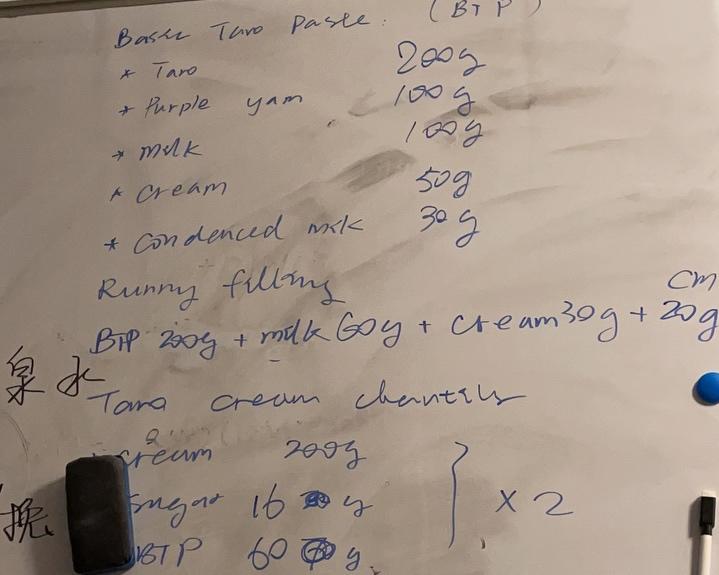 Basic Taro Paste: (BTP)
* Taro 200g
* Purple yam 100g
* milk 100g
* cream 50g
* Condenced milk 30g
Runny filling
CM
BTP 200g + milk 60g + cream 30g + 20g
泉水
Taro cream chantily
cream 200g
sugar 16 g
BTP 60 g
} × 2